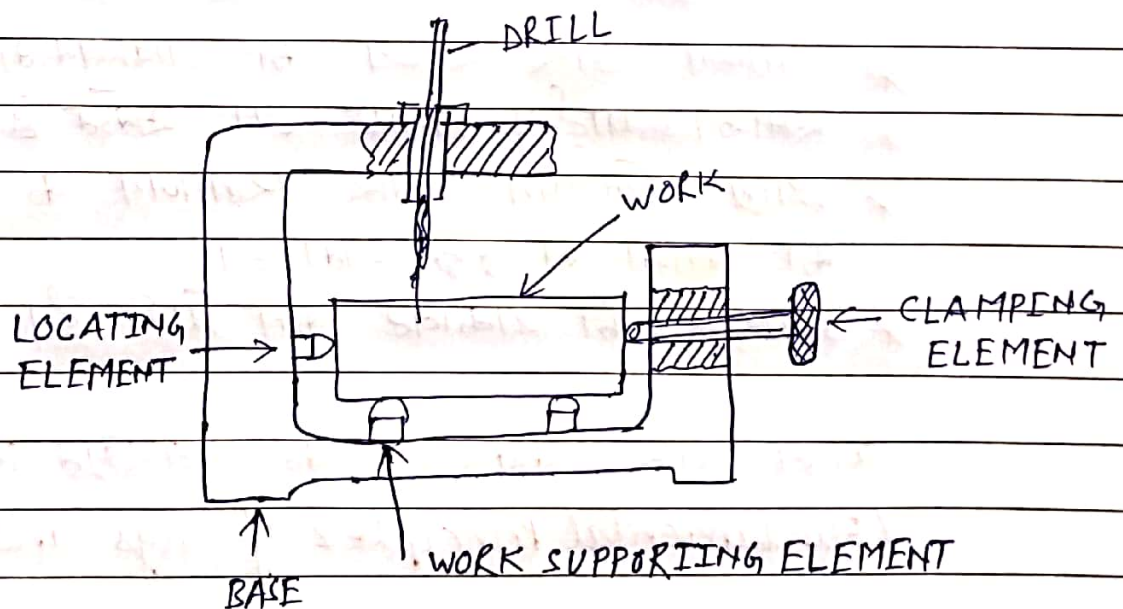 DRILL
WORK
LOCATING
ELEMENT
CLAMPING
ELEMENT
WORK SUPPORTIING ELEMENT
BASE